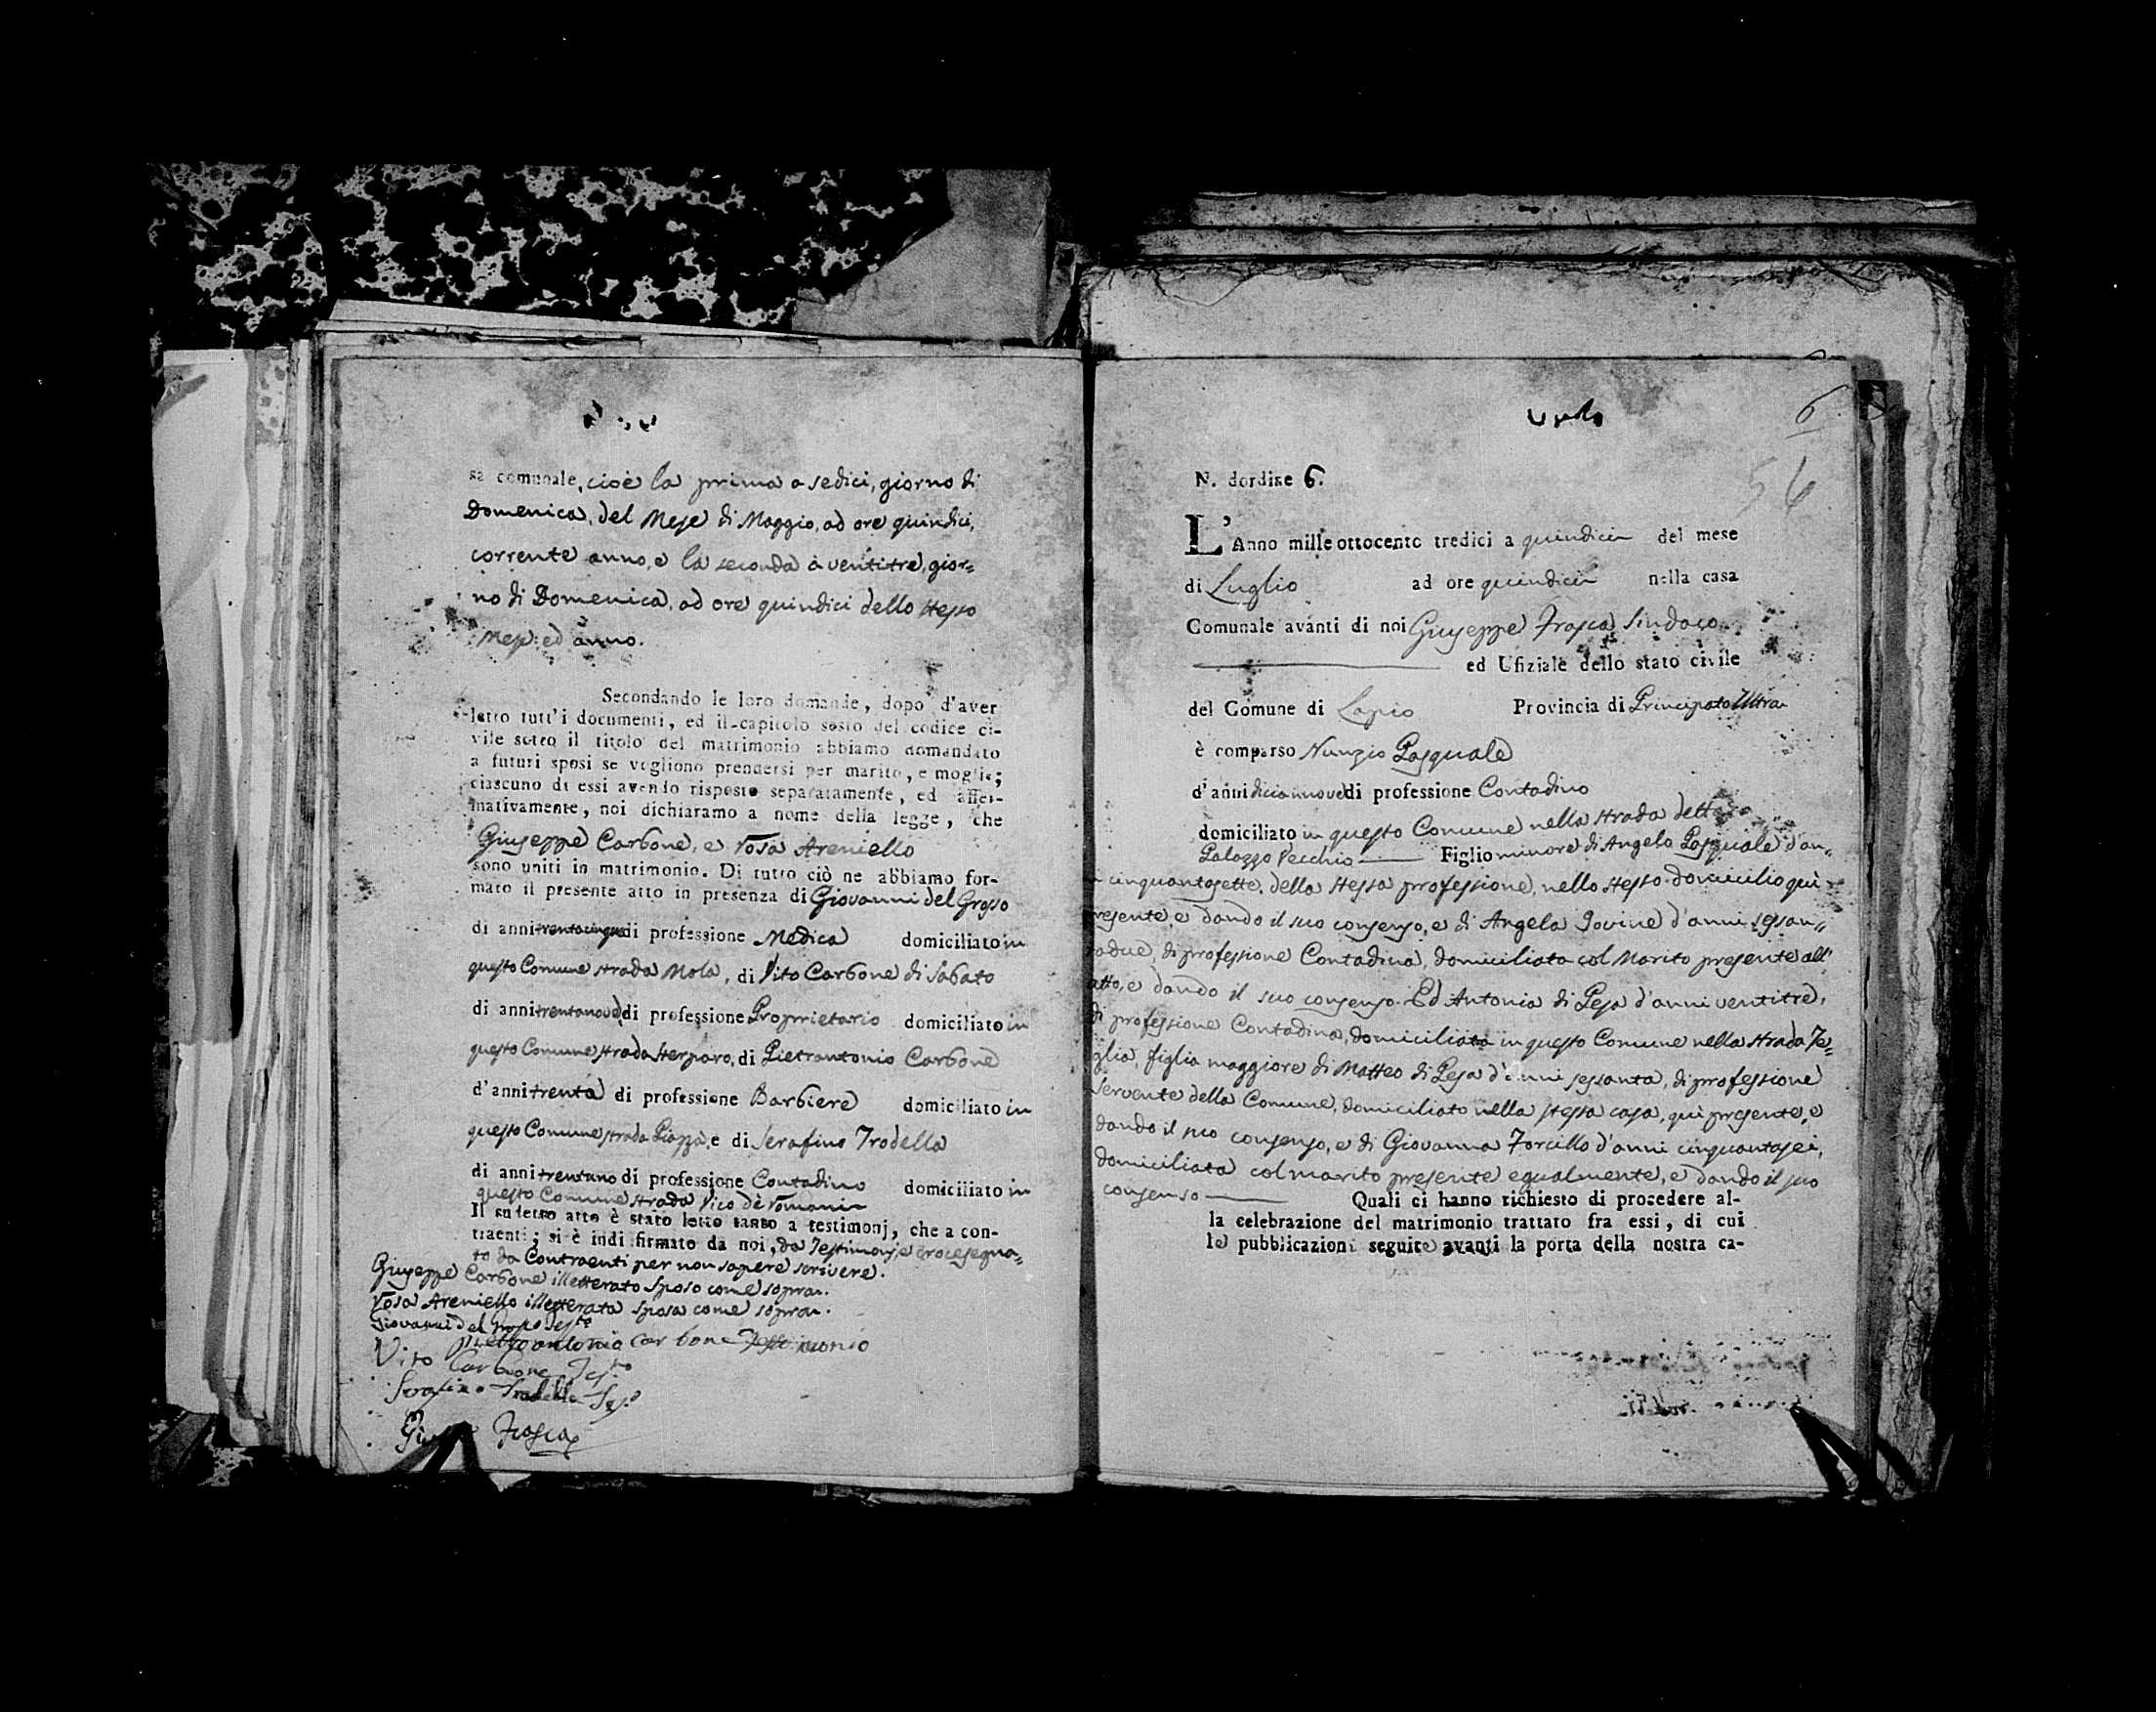 sa comunale, cioè la prima a sedici, giorno di
Domenica, del Mese di Maggio, ad ore quindici,
corrente anno, e la seconda à ventitre, gior=
no di Domenica, ad ore quindici dello stesso
Mese: ed anno.
Secondando le loro domande, dopo d'aver
letto tutt'i documenti, ed il capitolo sesto del codice ci-
vile sotto il titolo del matrimonio abbiamo domandato
a futuri sposi se vogliono prendersi per marito, e moglie;
ciascuno di essi avendo risposto separatamente, ed affer-
mativamente, noi dichiaramo a nome della legge, che
Giuseppe Carbone, e Rosa Areniello
sono uniti in matrimonio. Di tutto ciò ne abbiamo for-
mato il presente atto in presenza di Giovanni del Grosso
di anni trentacinque di professione Medico domiciliato in
questo Comune strada Mola, di Vito Carbone di Sabato
di anni trentanove di professione Proprietario domiciliato in
questo Comune strada Sterparo, di Pietrantonio Carbone
d'anni trenta di professione Barbiere domiciliato in
questo Comune strada Piazza, e di Serafino Trodella
di anni trentuno di professione Contadino domiciliato in
questo Comune strada Vico de Romani
Il sudetto atto è stato letto tanto a testimonj, che a con-
traenti; si è indi firmato da noi, da Testimonj e crocesegna=
to da Contraenti per non sapere scrivere.
Giuseppe Carbone illetterato sposo come sopra.
Rosa Areniello illetterata sposa come sopra.
Giovanni del Grosso Testo
Pietro antonio carbone Testimonio
Vito Carbone Testo
Serafino Trodella Tes.o
Frasca
6
56
N. dordine 6.
L'Anno mille ottocento tredici a quindici del mese
di Luglio ad ore quindici nella casa
Comunale avanti di noi Giuseppe Frasca Sindaco
ed Ufiziale dello stato civile
del Comune di Lapio Provincia di Principato Ultra
è comparso Nunzio Pasquale
d'anni diciannove di professione Contadino
domiciliato in questo Comune nella strada detta
Palazzo Vecchio Figlio minore di Angelo Pasquale d'an=
cinquantasette, della stessa professione, nello stesso domicilio quì
presente e dando il suo consenso, e di Angela Iovine d'anni sessan=
tadue, di professione Contadina, domiciliata col Marito presente all'
atto, e dando il suo consenso. Ed Antonia di Pesa d'anni ventitre,
di professione Contadina, domiciliata in questo Comune nella strada Te=
glia, figlia maggiore di Matteo di Pesa d'anni sessanta, di professione
Servente della Comune, domiciliato nella stessa casa, quì presente, e
dando il suo consenso, e di Giovanna Forcillo d'anni cinquantasei,
domiciliata col marito presente egualmente, e dando il suo
consenso Quali ci hanno richiesto di procedere al-
la celebrazione del matrimonio trattato fra essi, di cui
le pubblicazioni seguite avanti la porta della nostra ca-